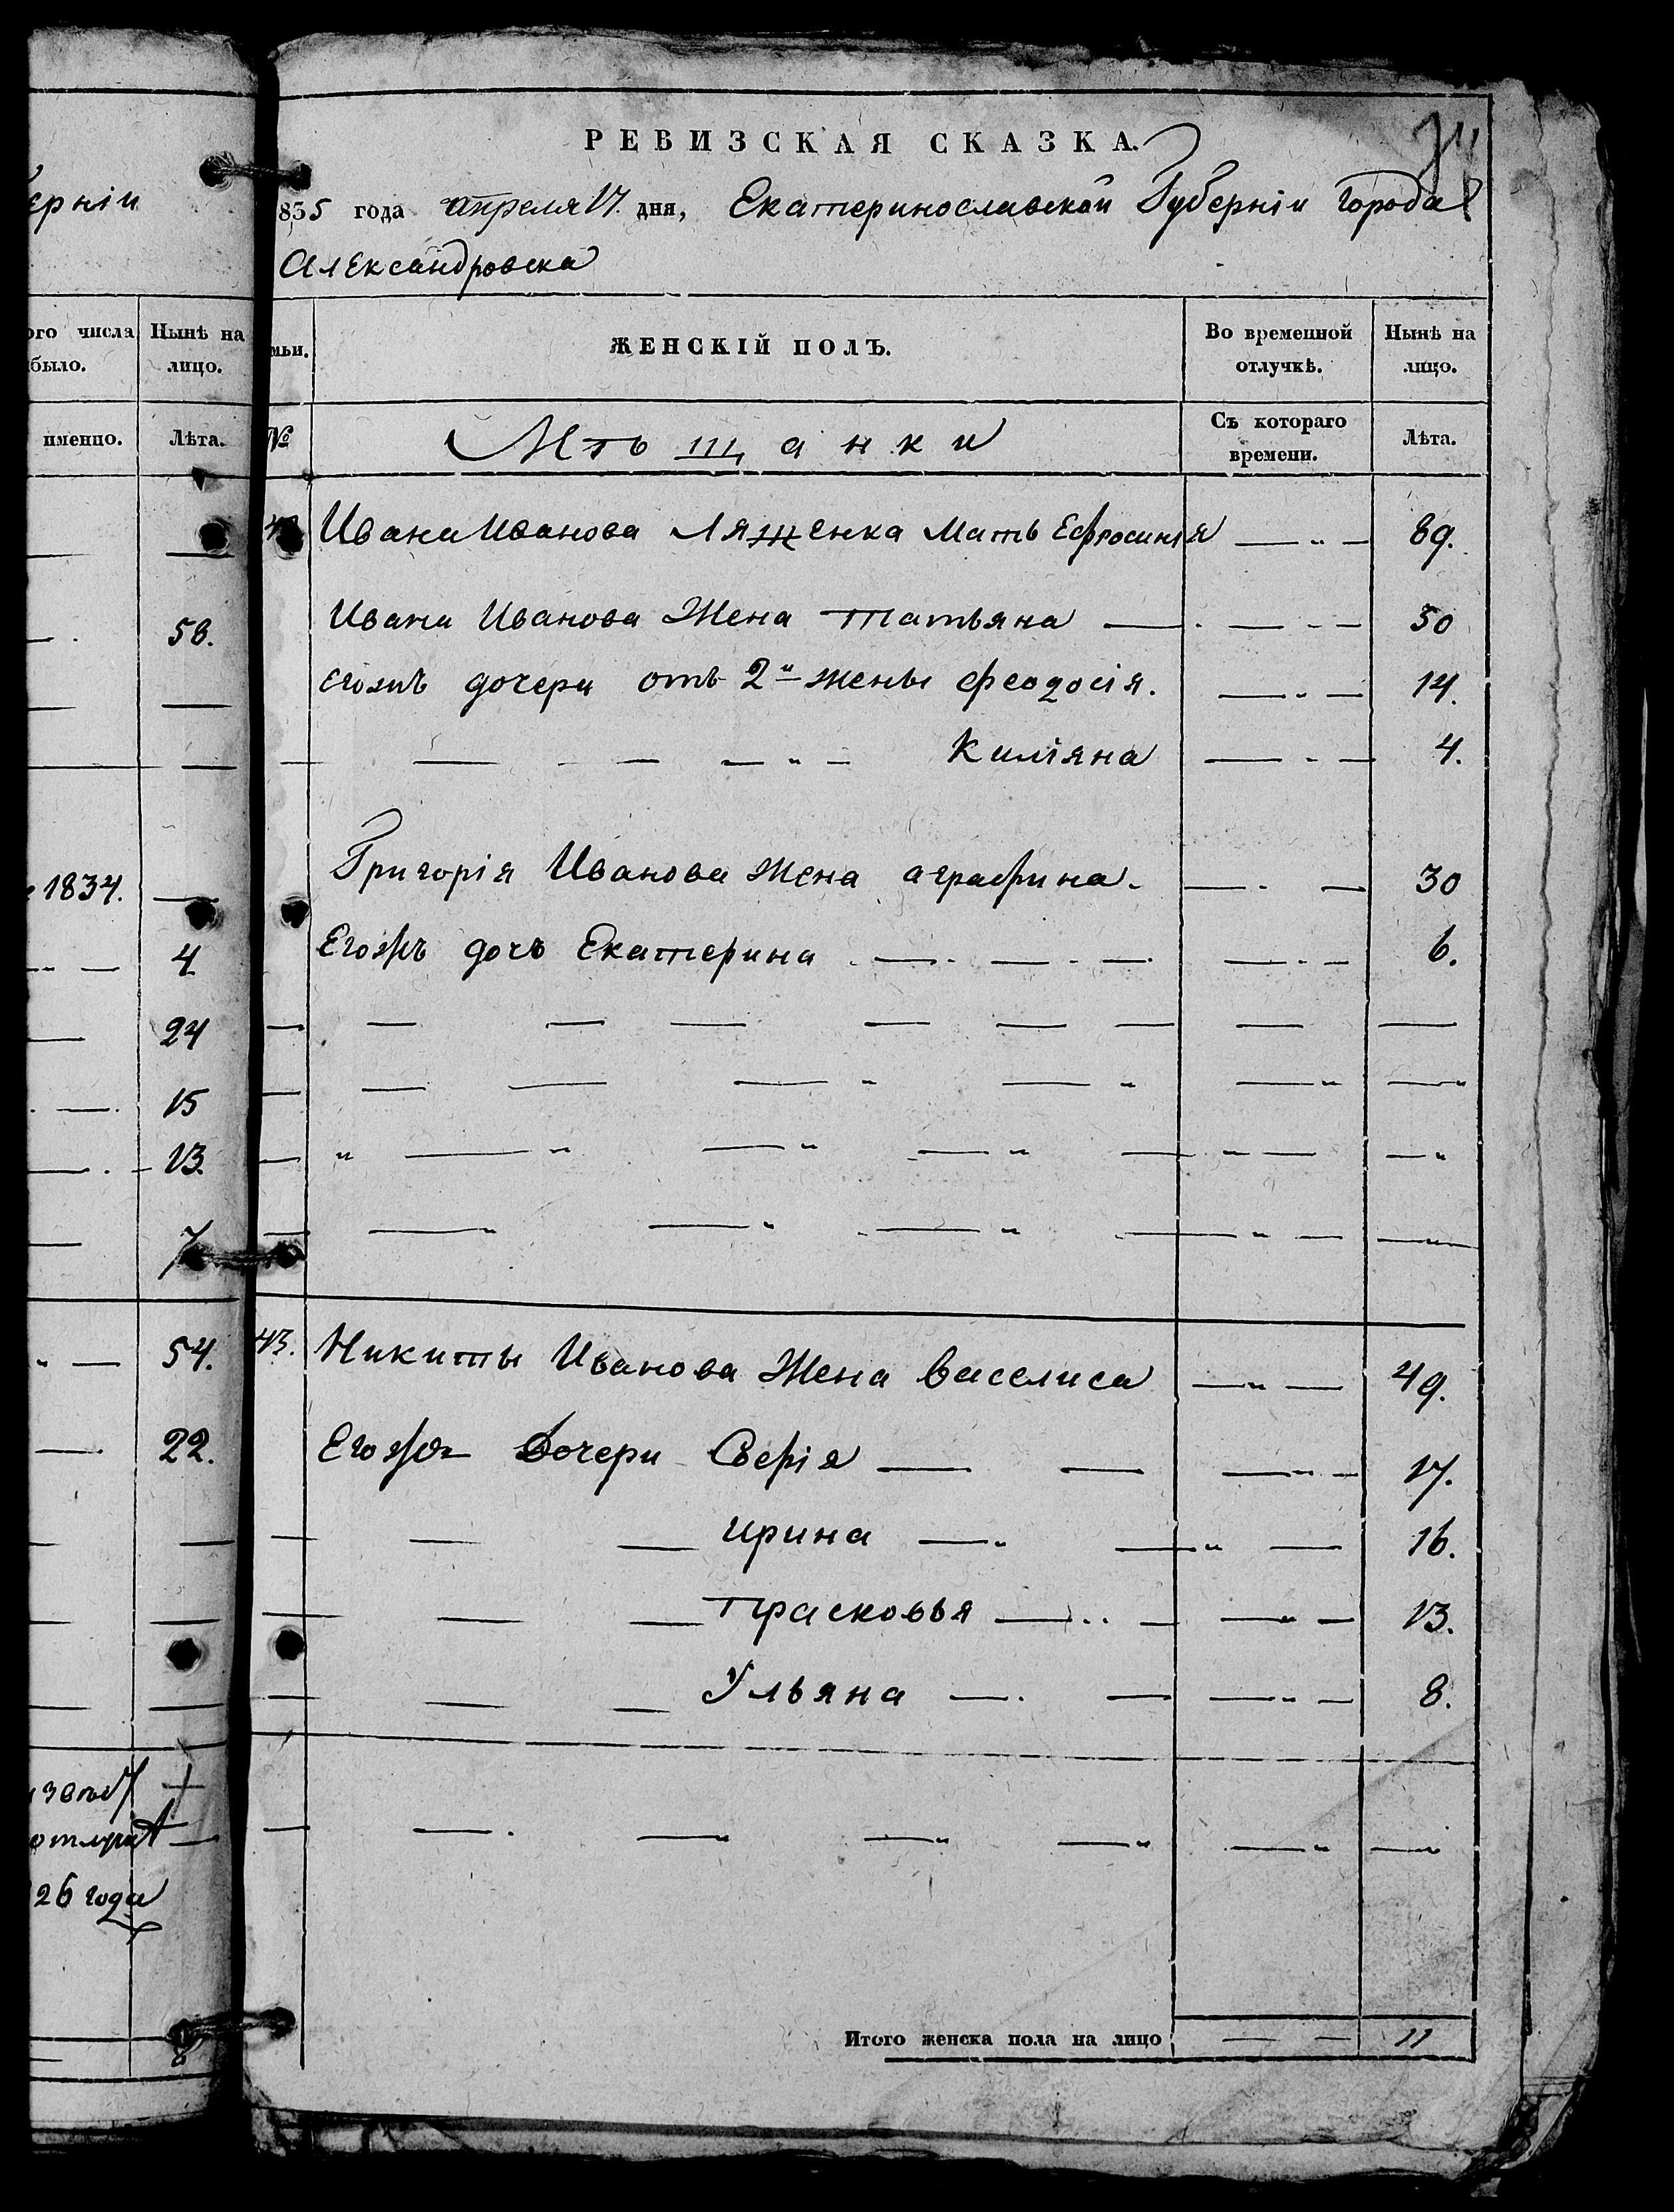 ерніи
ого числа
было.
Нынѣ на
лицо.
именно.
Лѣта.
58.
1834.
4
24
15
13.
7
54.
22.
26 года
РЕВИЗСКАЯ СКАЗКА.
835 года апреля 17. дня, Екатеринославской Губерніи города
Александровска
мьи.
ЖЕНСКІЙ ПОЛЪ.
Во временной
отлучкѣ.
Нынѣ на
лицо.
№
Мѣщанки
Съ котораго
времени.
Лѣта.
Ивана Иванова Ляшенка Мать Ефросинія — „ — 89.
Ивана Иванова Жена Татьяна — — - - 50
Егожъ дочери отъ 2й жены Феодосія. — „ — 14.
— - — — „ — Киліяна — - — 4.
Григорія Иванова Жена аграфина. — . — 30
Егожъ дочь Екатерина — . — . — — . - 6.
43. Никиты Иванова Жена Василиса — „ — 49.
Егожъ Дочери 17.
— — Ирина — „ — „ — 16.
— — Прасковья — . . — — „ — 13.
— — Ульяна — . — — „ — 8.
Итого женска пола на лицо — — 11